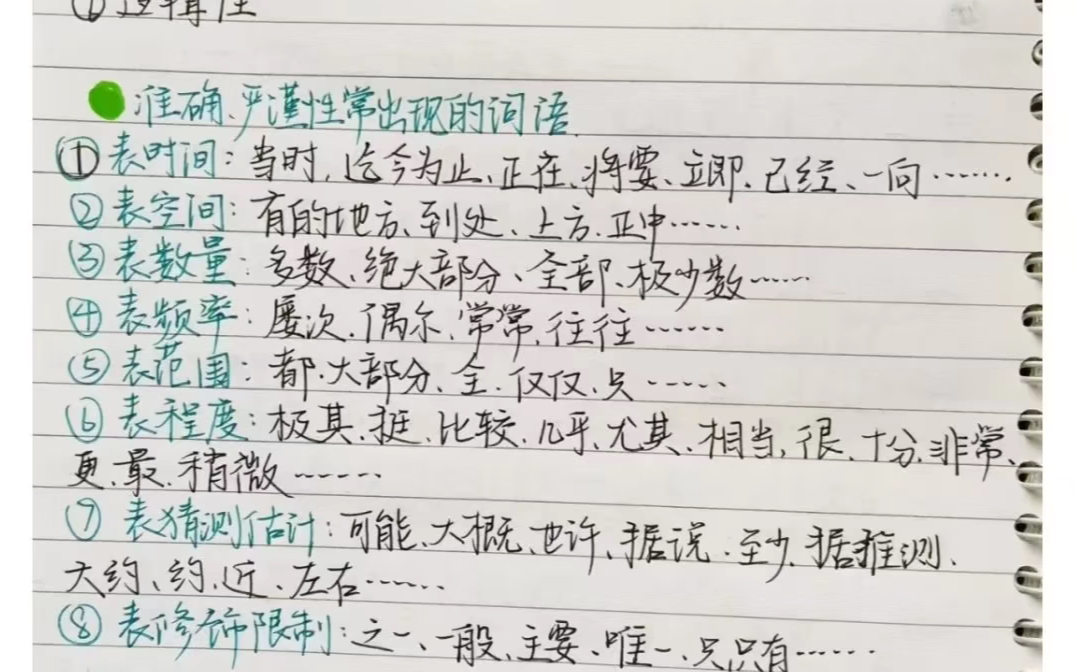 ①逻辑性
准确、严谨性常出现的词语.
①表时间：当时、迄今为止、正在、将要、立即、已经、一向……
②表空间：有的地方、到处、上方、正中……
③表数量：多数、绝大部分、全部、极少数……
④表频率：屡次、偶尔、常常、往往……
⑤表范围：都、大部分、全、仅仅、只……
⑥表程度：极其、挺、比较、几乎、尤其、相当、很、十分、非常、
更、最、稍微……
⑦表猜测估计：可能、大概、也许、据说、至少、据推测、
大约、约、近、左右……
⑧表修饰限制：之一、一般、主要、唯一、只只有……